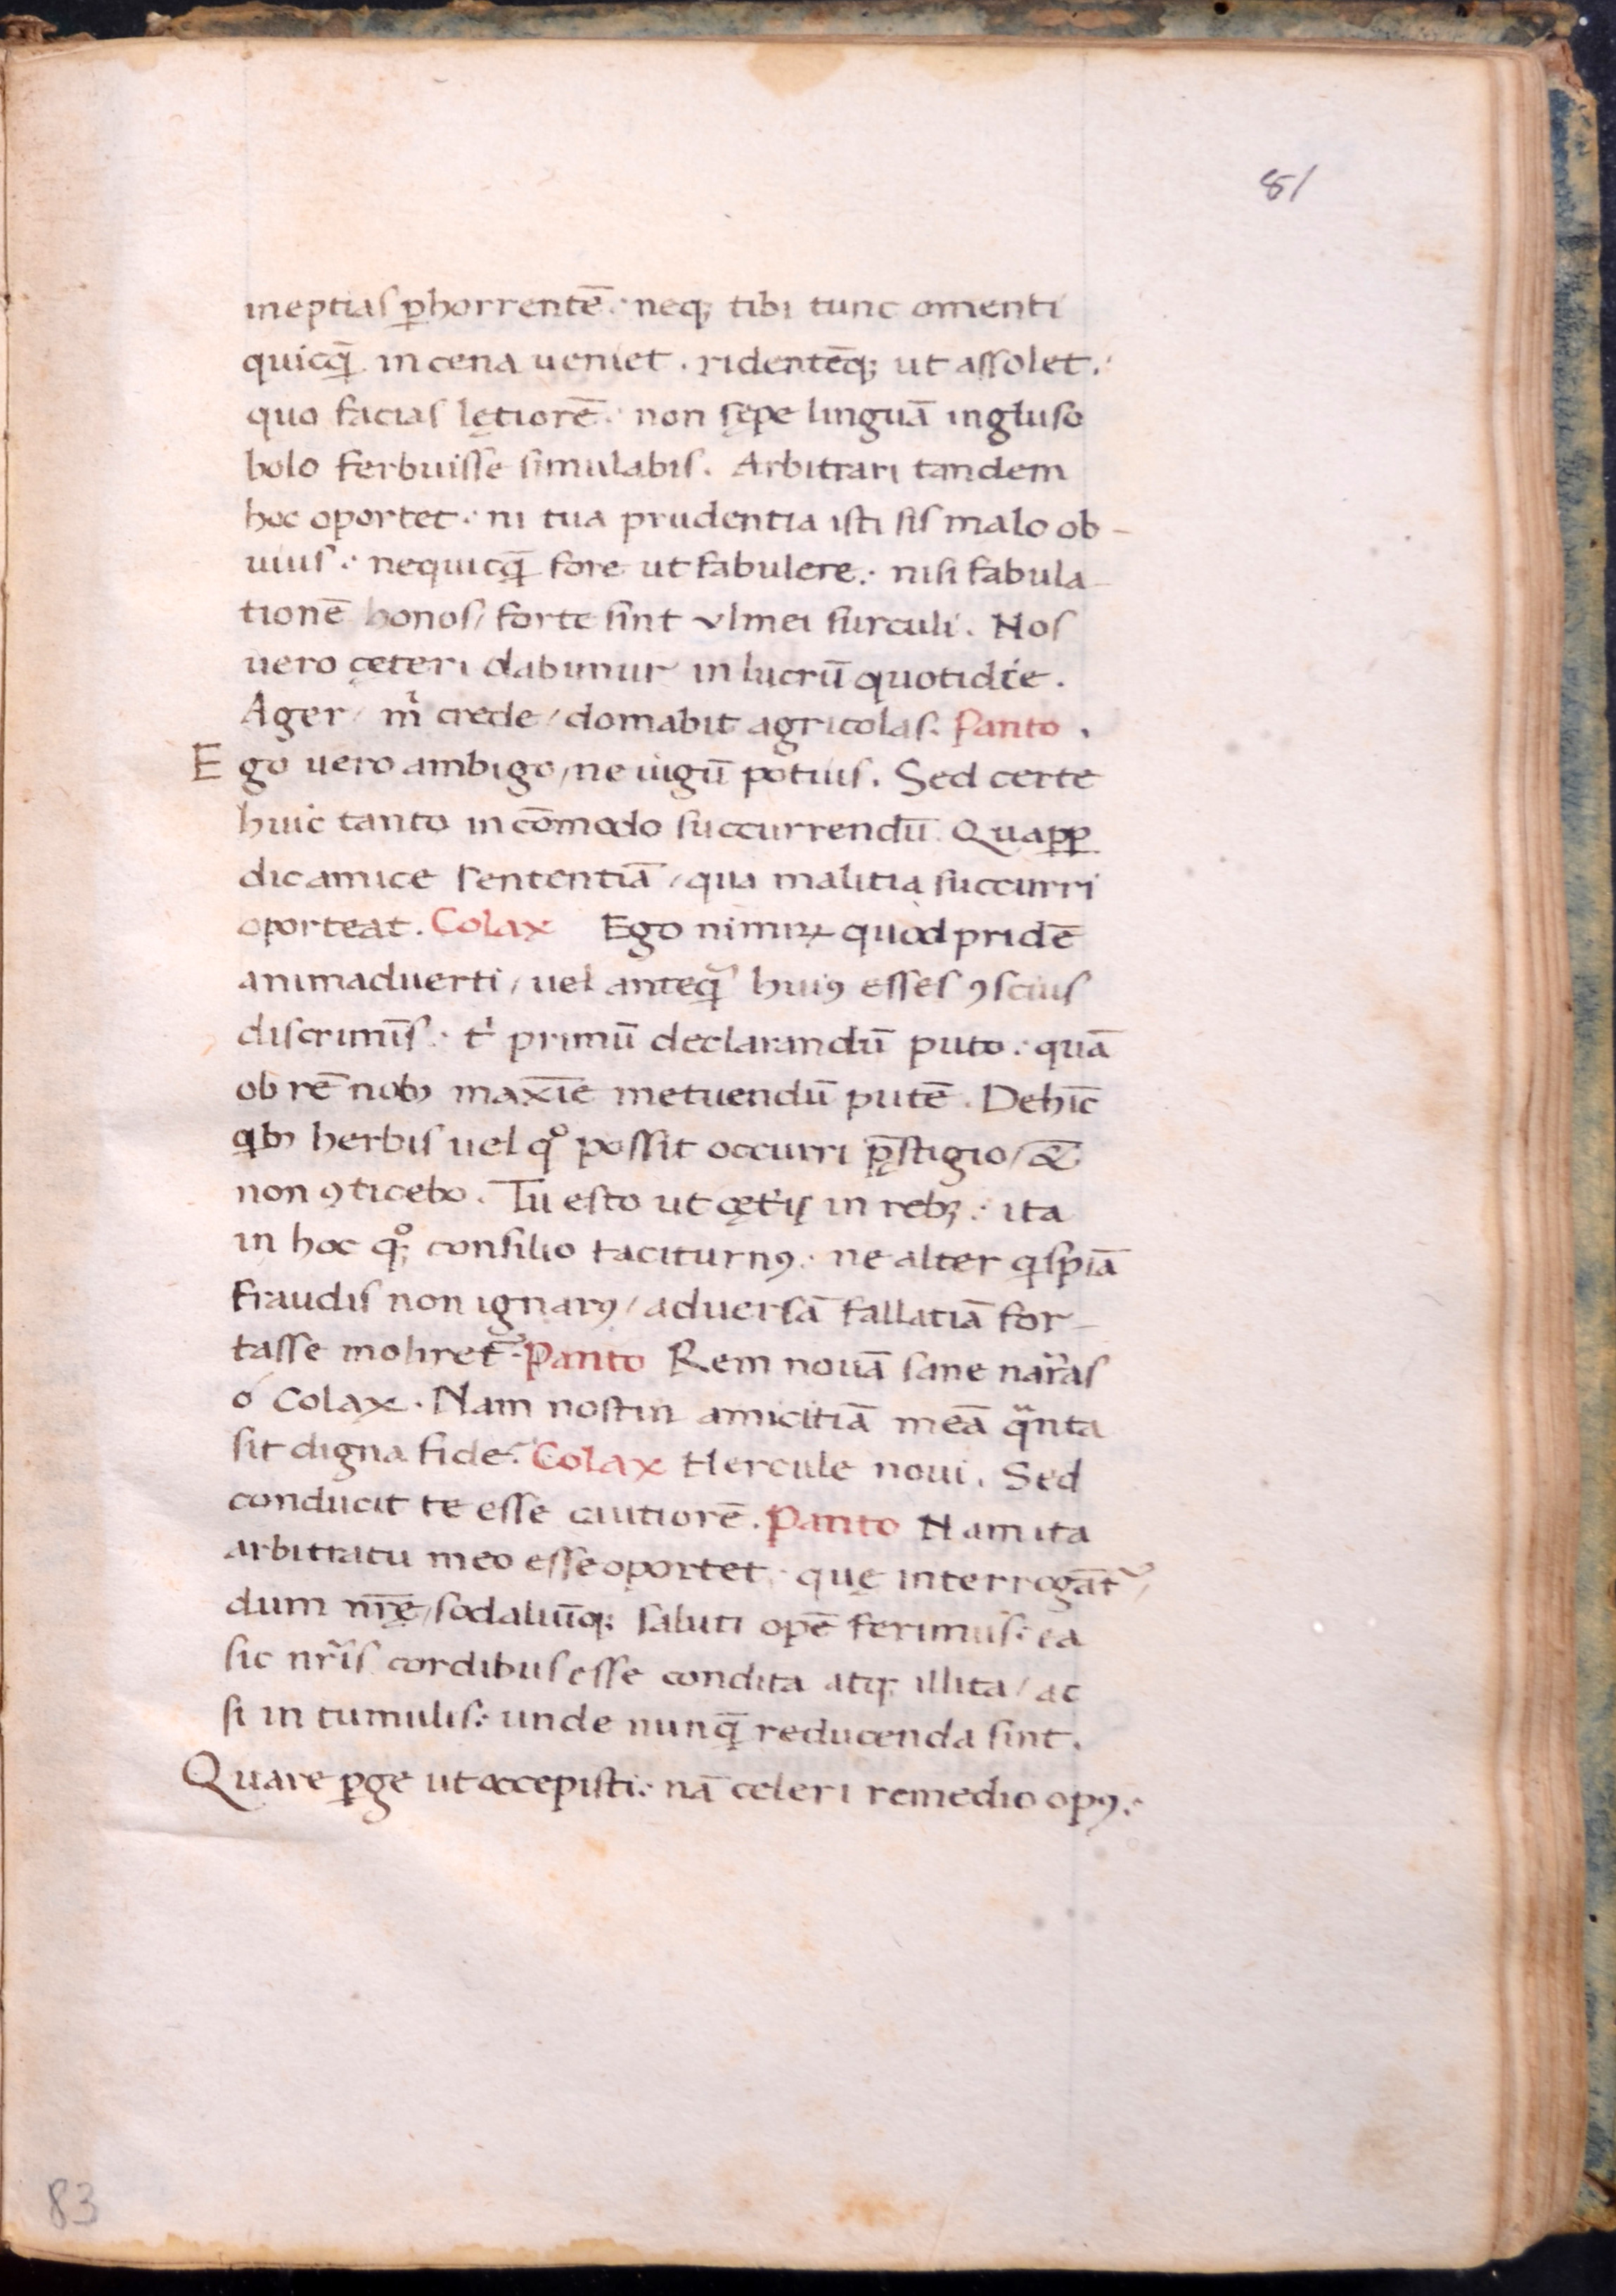 81
ineptias ꝑhorrentē: neqꝫ tibi tunc omenti
quicq̄ in cena ueniet. ridentēqꝫ ut assolet.
quo facias lętiorē: non sępe linguā ingluso
bolo ferbuisse simulabis. Arbitrari tandem
hoc oportet: ni tua prudentia isti sis malo ob-
uius: nequicq̄ fore ut fabulere: nisi fabula-
tionē honos/ forte sint vlmei surculi. Nos
uero çeteri dabimur in lucrū quotidie.
Ager/ m̓ crede/ domabit agricolas. Panto.
Ego uero ambigo/ ne iugū potius. Sed certe
huic tanto incōmodo succurrendū. Quapꝓ
dic amice sententiā/ qua malitia succurri
oporteat. Colax Ego nimiꝝ quod pridē
animaduerti/ uel anteq̄ huiꝯ esses ꝯscius
discrimīs: t̓ primū declarandū puto: quā
ob rē nob̄ maxīe metuendū putē. Dehīc
qib̄ herbis uel qͦ possit occurri p̄stigio/ &
non ꝯticebo. Tu esto ut cęt̓is in rebꝫ: ita
in hoc qͦꝫ consilio taciturnꝯ: ne alter qispiā
fraudis non ignarꝯ/ aduersā fallatiā for-
tasse moliret᷑. Panto Rem nouā sane nar̃as
ó Colax. Nam nostin amicitiā meā qᷓnta
sit digna fide? Colax Hercule noui. Sed
conducit te esse cautiorē. Panto Nam ita
arbitratu meo esse oportet: quę interrogāt᷑/
dum nr̄ę/ sodaliūqꝫ saluti opē ferimus: ea
sic nr̄is cordibus esse condita atqꝫ illita/ ac
si in tumulis: unde nunq̄ reducenda sint.
Quare ꝑge ut occepisti: nā celeri remedio opꝯ:
83